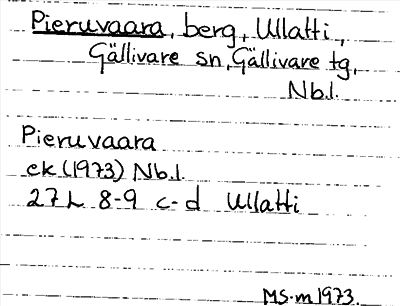 Pieruvaara, berg, Ullatti,
Gällivare sn, Gällivare tg,
Nb.l.
Pieruvaara
ek (1973) Nb.l.
27 L 8-9 c-d Ullatti
MS-m 1973.